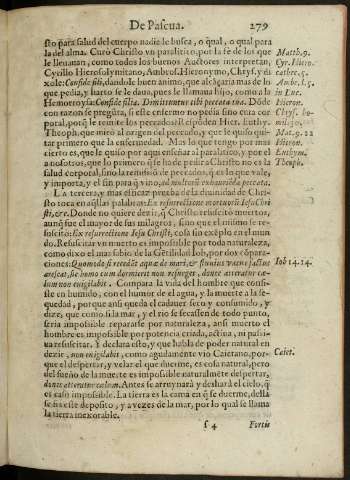 De Pascua. 279
sto para salud del cuerpo nadie le busca, o qual, o qual para
la del alma. Curò Christo vn paralitico, por la fè de los que
le lleuauan, como todos los buenos Auctores interpretan,
Cyrillo Hierosolymitano, Ambros. Hieronymo, Chrys. y di
xole: Confide fili, dandole buen animo, que alcãçaria mas de lo
que pedia, y harto se le daua, pues le llamaua hijo, como a la
Hemorroysa: Confide filia. Dimittuntur tibi peccata tua. Dõde
con razon se pregũta, si este enfermo no pedia sino cura cor
poral, porq̃ le remite los peccados? Respõden Hier. Euthy.
Theoph. que mirò al origen del peccado, y que le quiso qui-
tar primero que la enfermedad. Mas lo que tengo por mas
cierto es, que le quiso por aqui enseñar al paralitico, y por el
a nosotros, que lo primero q̃ se ha de pedir a Christo no es la
salud corporal, sino la remissiõ de peccados, q̃ es lo que vale,
y importa, y el fin para q̃ vino, ad multorũ exhaurièda peccata.
La tercera, y mas eficaz prueua de la diuinidad de Chri-
sto toca en aq̃llas palabras: Ex resurrectione mortuorũ Iesu Chri
sti, &c. Donde no quiere dezir, q̃ Christo resuscitò muertos,
aunq̃ fue el mayor de sus milagros, sino que el mismo se re-
suscitò: Ex resurrectione Iesu Christi, cosa sin exẽplo en el mun
do. Resuscitar vn muerto es imposible por toda naturaleza,
como dixo el mas sabio de la Gẽtilidad Iob, por dos cõpara-
ciones: Quomodo si recedãt aquæ de mari, & fluuius vacuefactus
arescat, sic homo cum dormierit non resurget, donec atteratur cæ-
lum non euigilabit. Compara la vida del hombre que consi-
ste en humido, con el humor de el agua, y la muerte a la se-
quedad, porque ansi queda el cadauer seco y consumido, y
dize, que como si la mar, y el rio se secassen de todo punto,
seria imposible repararse por naturaleza, ansi muerto el
hombre es imposible por potencia criada, actiua, ni passi-
ua resuscitar. Y declara esto, y que habla de poder natural en
dezir, non euigilabit, como agudamente vio Caietano, por-
que el despertar, y velar el que duerme, es cosa natural, pero
del sueño de la muerte es imposible naturalmẽte despertar,
donec atteratur cælum. Antes se arruynarà y desharà el cielo, q̃
es caso imposible. La tierra es la cama en q̃ se duerme, della
se dize este deposito, y a vezes de la mar, por lo qual se llama
la tierra inexorable.
f 4 Fortis
Matth. 9.
Cyr. Hiero.
cathec. 5.
Amb. l. 5.
in Luc.
Hieron.
Chrys. ho-
mil. 30.
Mat. 9. 22
Hieron.
Euthym.
Theoph.
Iob 14. 14.
Caiet.